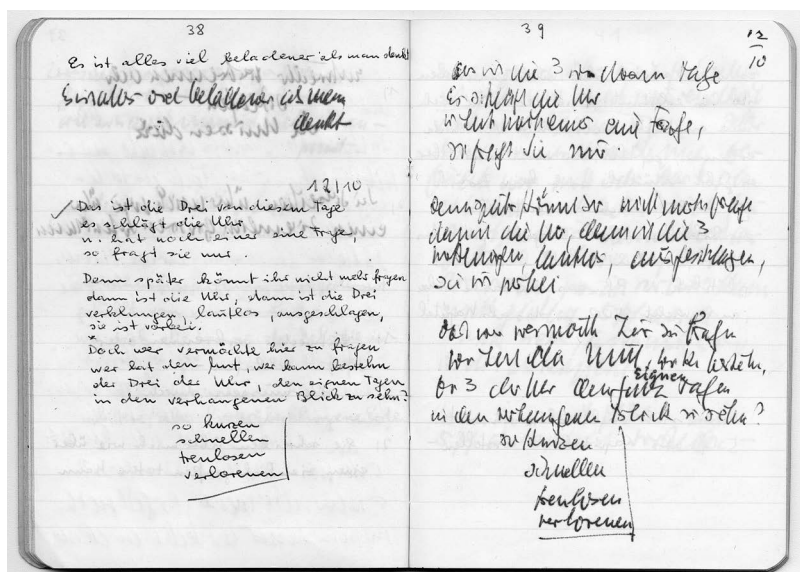 38
Es ist alles viel beladener als man denkt
Es ist alles viel beladener als man
denkt
12/10
Das ist die Drei von diesem Tage
es schlägt die Uhr
u. hat noch einer eine Frage,
so fragt sie nur.
Denn später könnt ihr nicht mehr fragen
dann ist die Uhr, dann ist die Drei
verklungen, lautlos, ausgeschlagen,
sie ist vorbei.
Doch wer vermöchte hier zu fragen
wer hat den Mut, wer kann bestehn
der Drei der Uhr, den eignen Tagen
in den verhangenen Blick zu sehn?
so kurzen
schnellen
treulosen
verlorenen
39
12/10
die 3 von diesem Tage
Es schlägt die Uhr
eine Frage,
so fragt sie nur.
Denn später könnt ihr nicht mehr fragen
dann die Uhr, dann ist die 3
verklungen, lautlos, ausgeschlagen,
sie ist vorbei
Doch wer vermöcht hier zu fragen
wer hat den Mut, wer kann bestehn,
3 der Uhr den eignen Tagen
in den verhangenen Blick zu sehn?
so kurzen
schnellen
treulosen
verlorenen